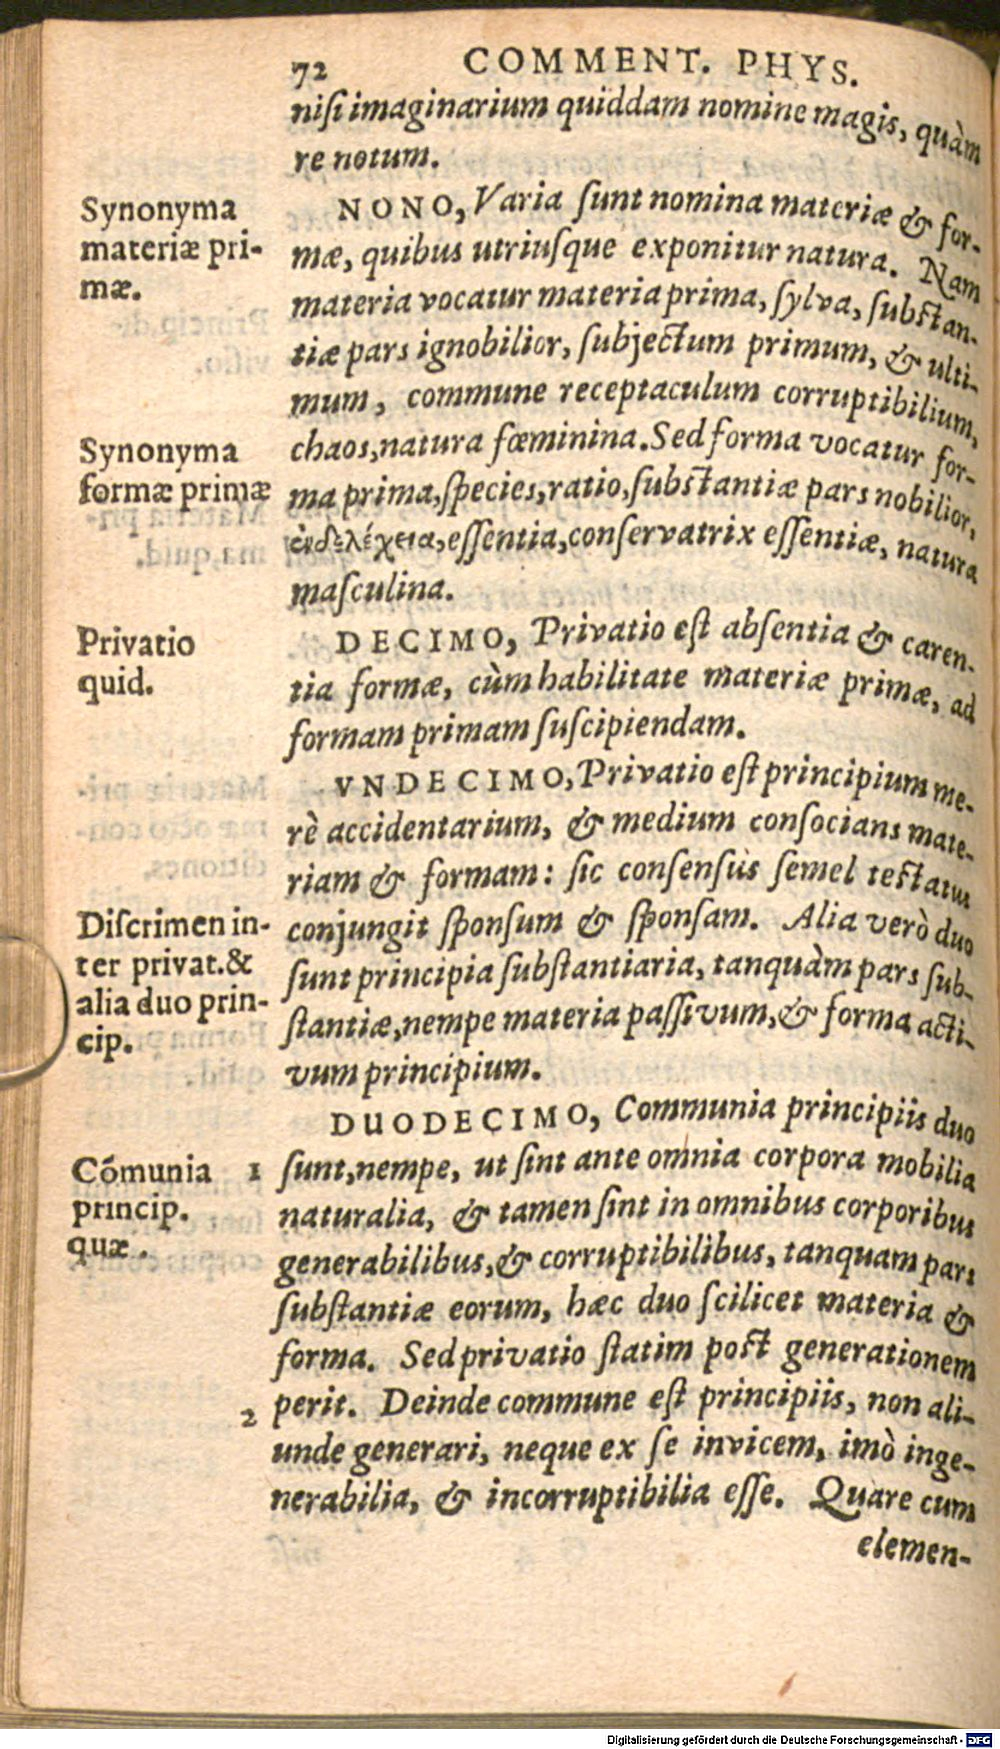 72 COMMENT. PHYS.
niſi imaginarium quiddam nomine magis, quàm
re notum.
Synonyma
materiæ pri-
mæ.
NONO, Varia ſunt nomina materiæ & for-
mæ, quibus utriuſque exponitur natura. Nam
materia vocatur materia prima, ſylva, ſubſtan-
tiæ pars ignobilior, ſubjectum primum, & ulti-
mum, commune receptaculum corruptibilium,
chaos, natura fœminina. Sed forma vocatur for-
Synonyma
formæ primæ
ma prima, ſpecies, ratio, ſubſtantiæ pars nobilior,
ἐνδελέχεια, eſſentia, conſervatrix eſſentiæ, natura
maſculina.
Privatio
quid.
DECIMO, Privatio eſt abſentia & caren-
tia formæ, cùm habilitate materiæ primæ, ad
formam primam ſuſcipiendam.
VNDECIMO, Privatio eſt principium me-
rè accidentarium, & medium conſocians mate-
riam & formam: ſic conſenſus ſemel teſtatus
Diſcrimen in-
ter privat. &
alia duo prin-
cip.
conjungit ſponſum & ſponſam. Alia verò duo
ſunt principia ſubſtantiaria, tanquàm pars ſub-
ſtantiæ, nempe materia paſſivum, & forma acti-
vum principium.
DUODECIMO, Communia principiis duo
Cõmunia
princip.
quæ.
1 ſunt, nempe, ut ſint ante omnia corpora mobilia
naturalia, & tamen ſint in omnibus corporibus
generabilibus, & corruptibilibus, tanquam pars
ſubſtantiæ eorum, hæc duo ſcilicet materia &
forma. Sed privatio ſtatim poſt generationem
2 perit. Deinde commune eſt principiis, non ali-
unde generari, neque ex ſe invicem, imò inge-
nerabilia, & incorruptibilia eſſe. Quare cum
elemen-
Digitalisierung gefördert durch die Deutsche Forschungsgemeinschaft - DFG